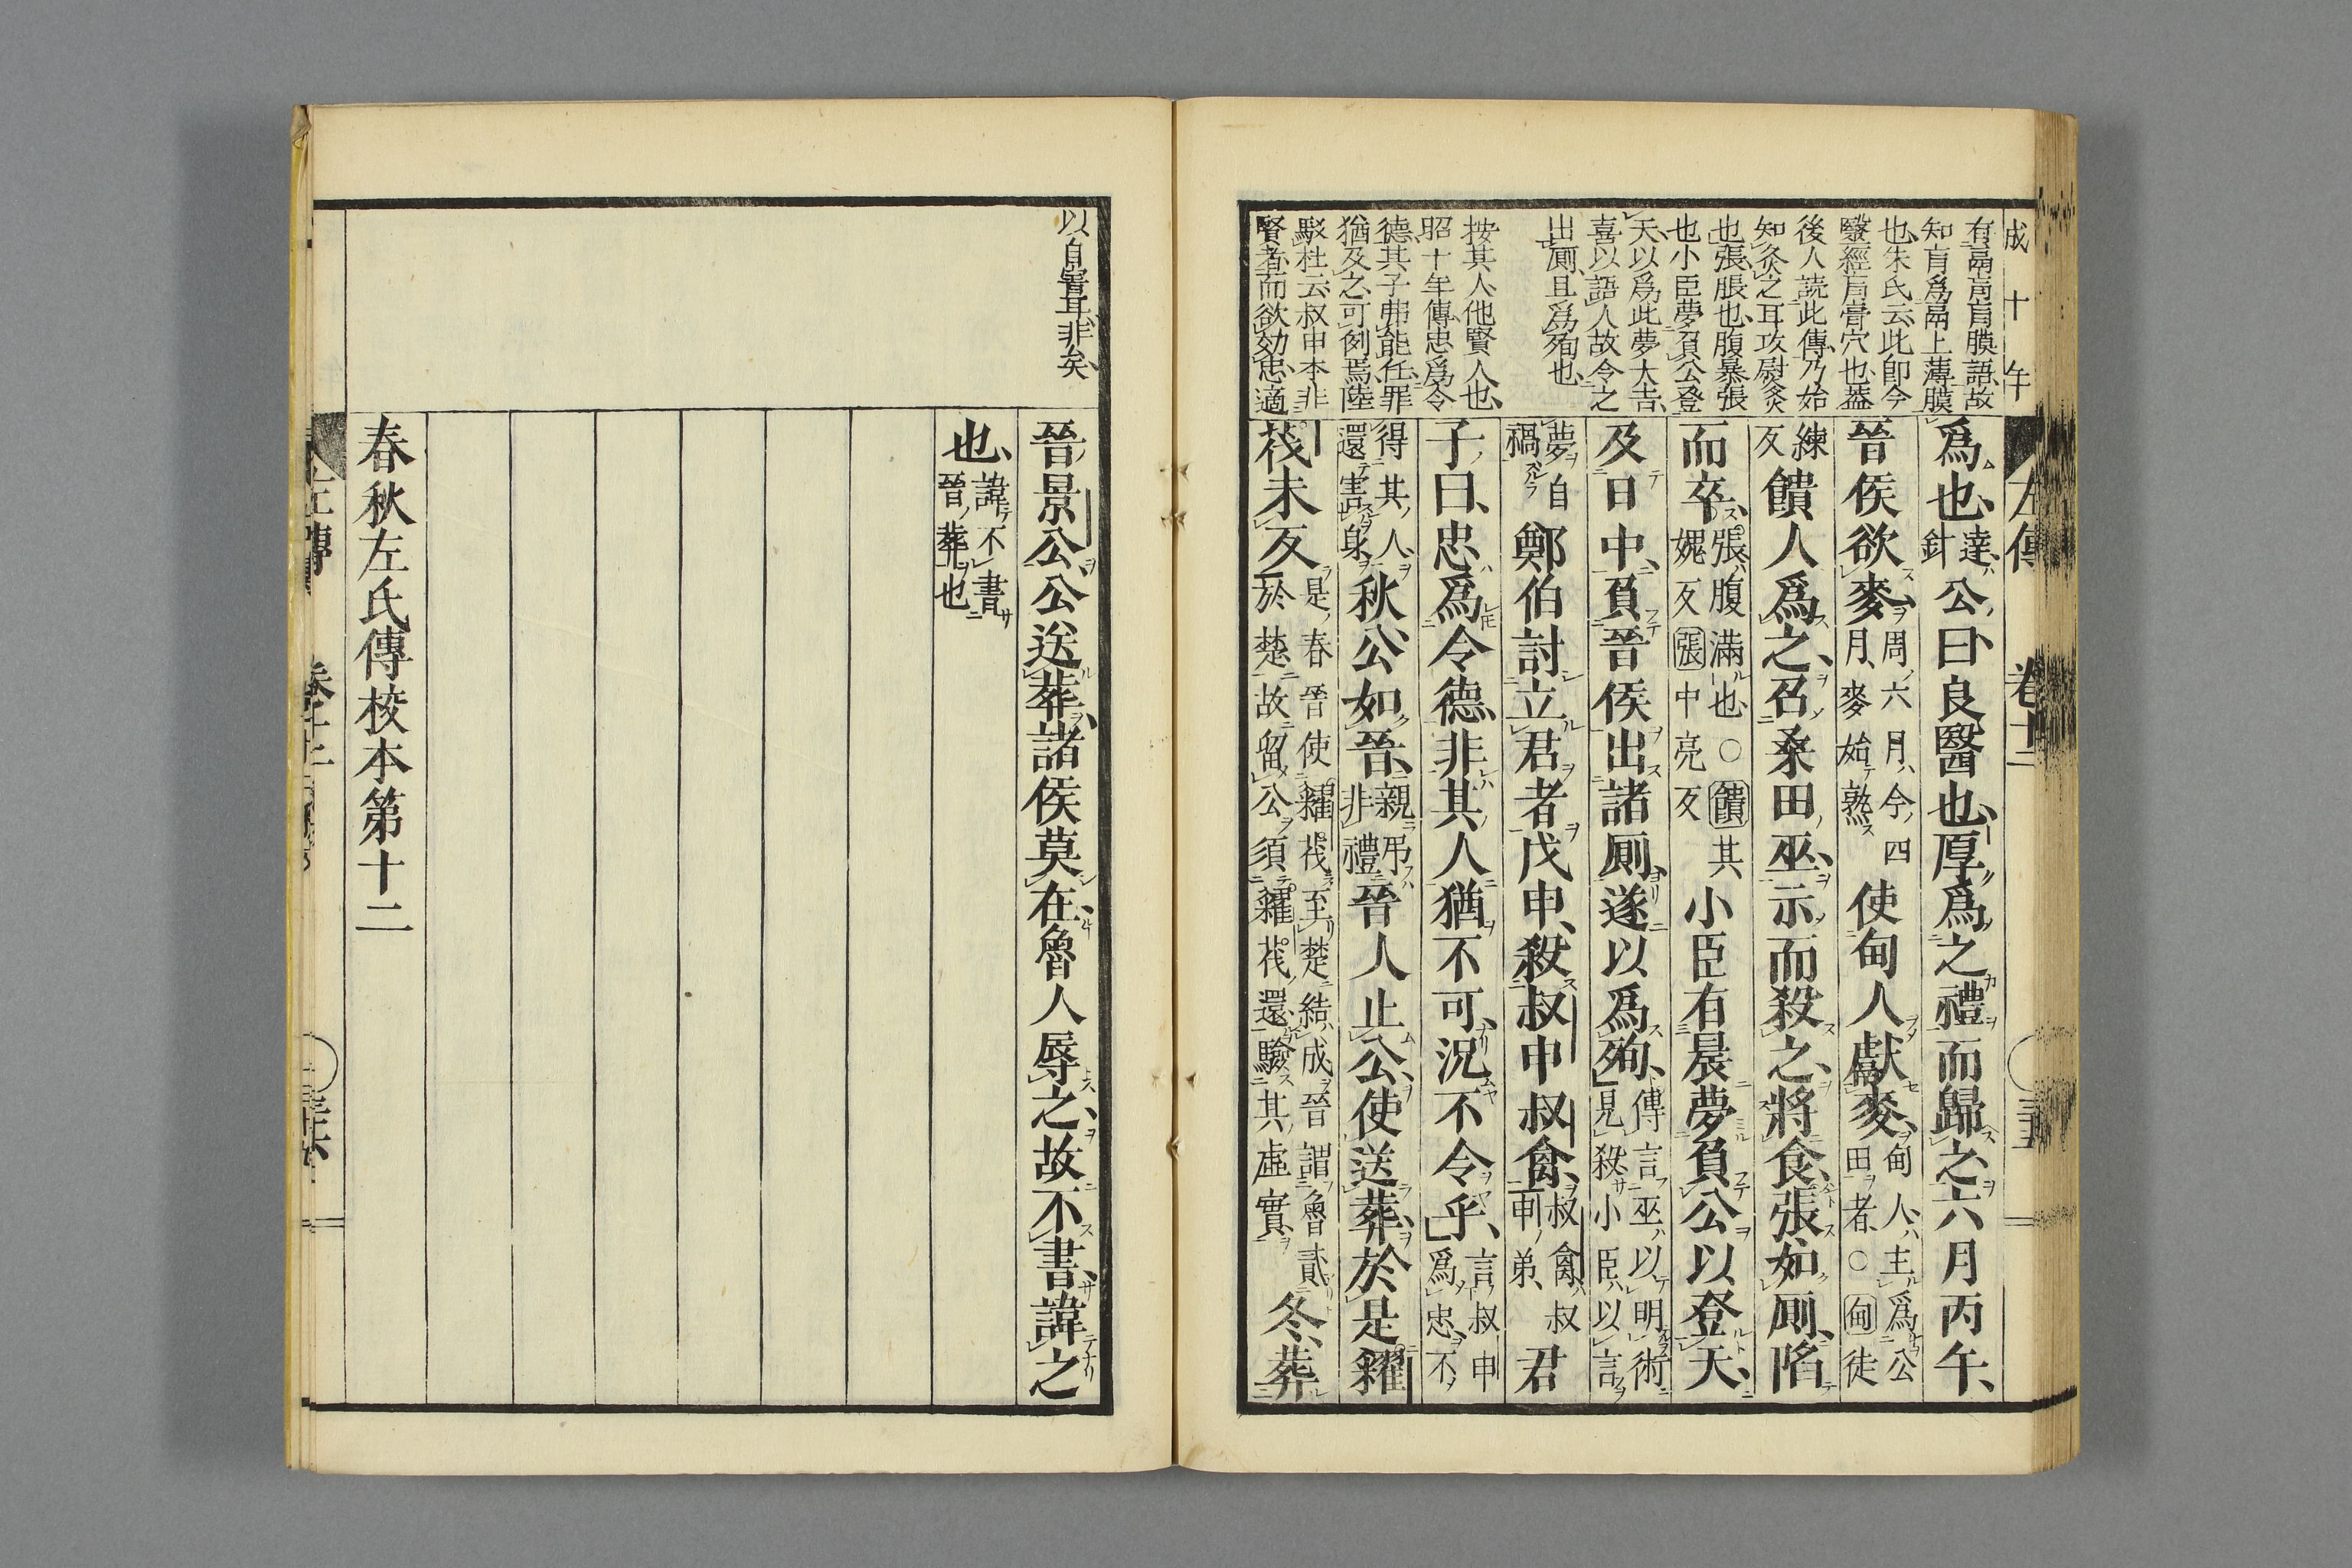 成十年
左傳 卷十二
有鬲肓肓膜語故
知肓爲鬲上薄膜
也、朱氏云、此即今
醫經肓膏穴也、蓋
後人読此傳、乃始
知灸之耳攻尉灸
也、張脹也、腹暴張
也小臣夢負公登
天、以爲此夢大吉、
喜以語人故令之
出厠、且爲殉也、
按其人、他賢人也、
昭十年傳、忠爲令
德、其子弗能任、罪
猶及之、可例焉、陸
駁杜云、叔申本非
賢者、而欲効忠、適
爲也、達、針公曰、良醫也、厚爲之禮而歸之、六月丙午、
晉侯欲麥、周六月、今四月、麥始熟使甸人獻麥、甸人、主爲公田者、○甸徒
練反饋人爲之、召桑田巫、示而殺之、將食、張、如厠、陷
而卒、張、腹滿也、○饋其媿反張中亮反小臣有晨夢負公以登天、
及日中、負晉侯出諸厠、遂以爲殉、傳言巫以明術見殺、小臣以言
夢自禍鄭伯討立君者、戊申、殺叔申叔禽、叔禽、叔申弟、君
子曰、忠爲令德、非其人猶不可、況不令乎、言叔申爲忠、不
得其人、還害身秋、公如晉、親弔、非禮晉人止公、使送葬、於是糴
茷未反是春晉使糴茷至楚結成、晉謂魯貳於楚、故留公、須糴茷還驗其虛實、冬、葬
以自害耳、非矣、
晉景公、公送葬、諸侯莫在、魯人辱之、故不書、諱之
也、諱不書晉葬也
春秋左氏傳校本第十二